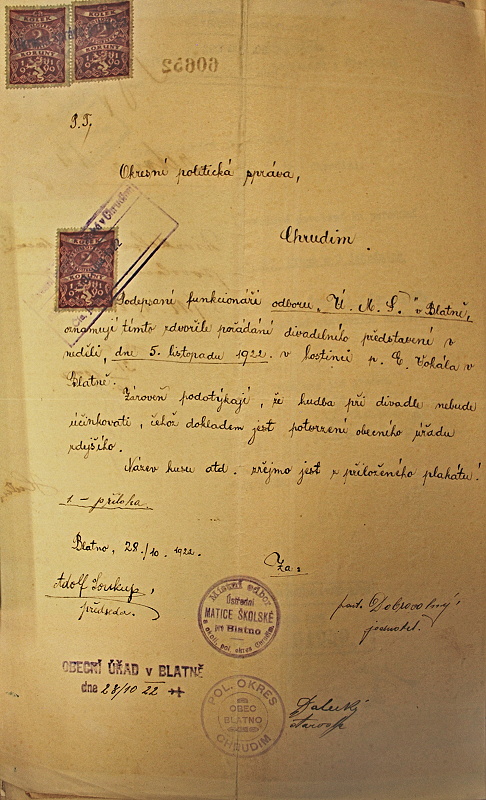 KOLEK
2
KORUNY
KOLEK
2
KORUNY
60622
P.T.
Okresní politická správa,
Chrudim.
KOLEK
2
KORUNY
Podepsaní funkcionáři odboru „Ú. M. Š." v Blatně,
oznamují tímto zdvořile pořádání divadelního představení v
neděli, dne 5. listopadu 1922. v hostinci p. Č. Vohála v
Blatně.
Zároveň podotýkají, že hudba při divadle nebude
účinkovati, čehož dokladem jest potvrzení obecního úřadu
zdejšího.
Název kusu atd. zřejmo jest z přiloženého plakátu!
1. – příloha.
Blatno, 28./10. 1922.
Za:
Adolf Soukup,
předseda.
Místní odbor
Ústřední
MATICE ŠKOLSKÉ
pro Blatno
a okolí, pol. okres Chrudim.
Dobrovolný,
jednatel.
OBECNÍ ÚŘAD v BLATNĚ
dne 28/10 22
POL. OKRES
OBEC
BLATNO
CHRUDIM
starosta